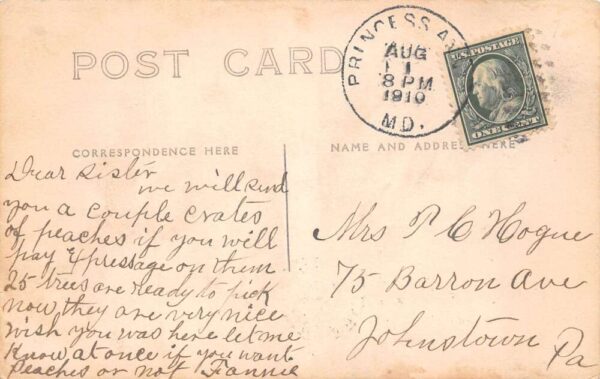 POST CARD
PRINCESS A
AUG
1
8 PM
1910
MD.
U.S. POSTAGE
ONE CENT
CORRESPONDENCE HERE
NAME AND ADDRESS HERE
Dear Sister
we will send
you a couple crates
of peaches if you will
pay Expressage on them
25 trees are ready to pick
now, they are very nice
wish you was here let me
know at once if you want
peaches or not Fannie
Mrs P C Hogue
75 Barron Ave
Johnstown
Pa